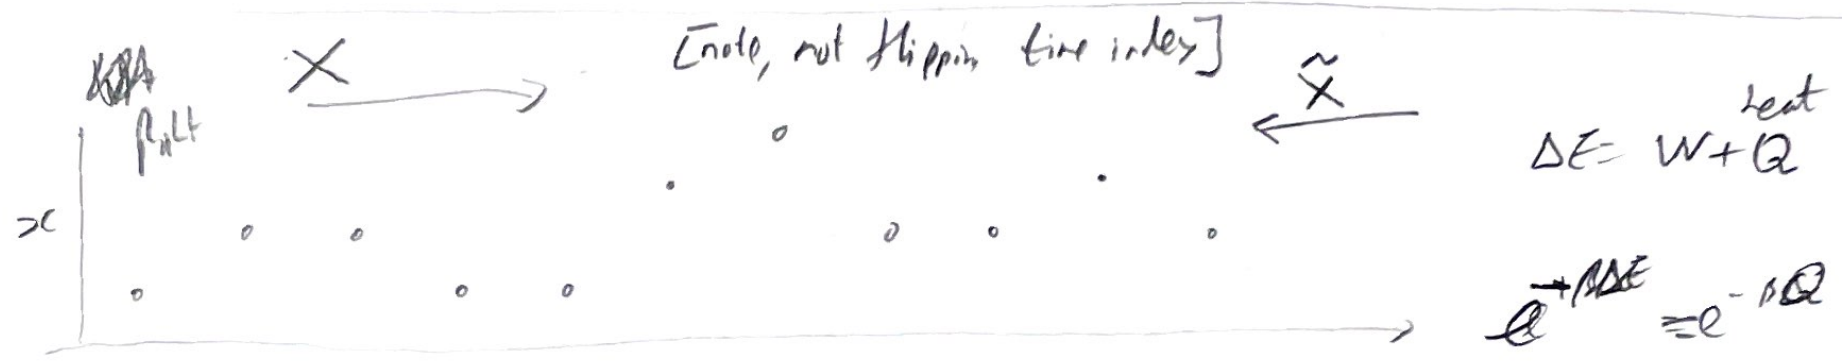 X [note, not flipping time index] X̃
heat
ΔE = W + Q
x
e^{-βΔE} = e^{-βQ}